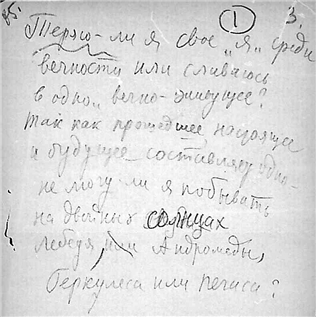 85. 1 3.
Теряю-ли я свое „я" среди
вечности или сливаюсь
в одно „ вечно-живущее?
Так как прошедшее настояще
и будущее составляет одно-
не могу ли я побывать
на двойных солнцах
Лебедя, или Андромеды,
Геркулеса или Пегаса?